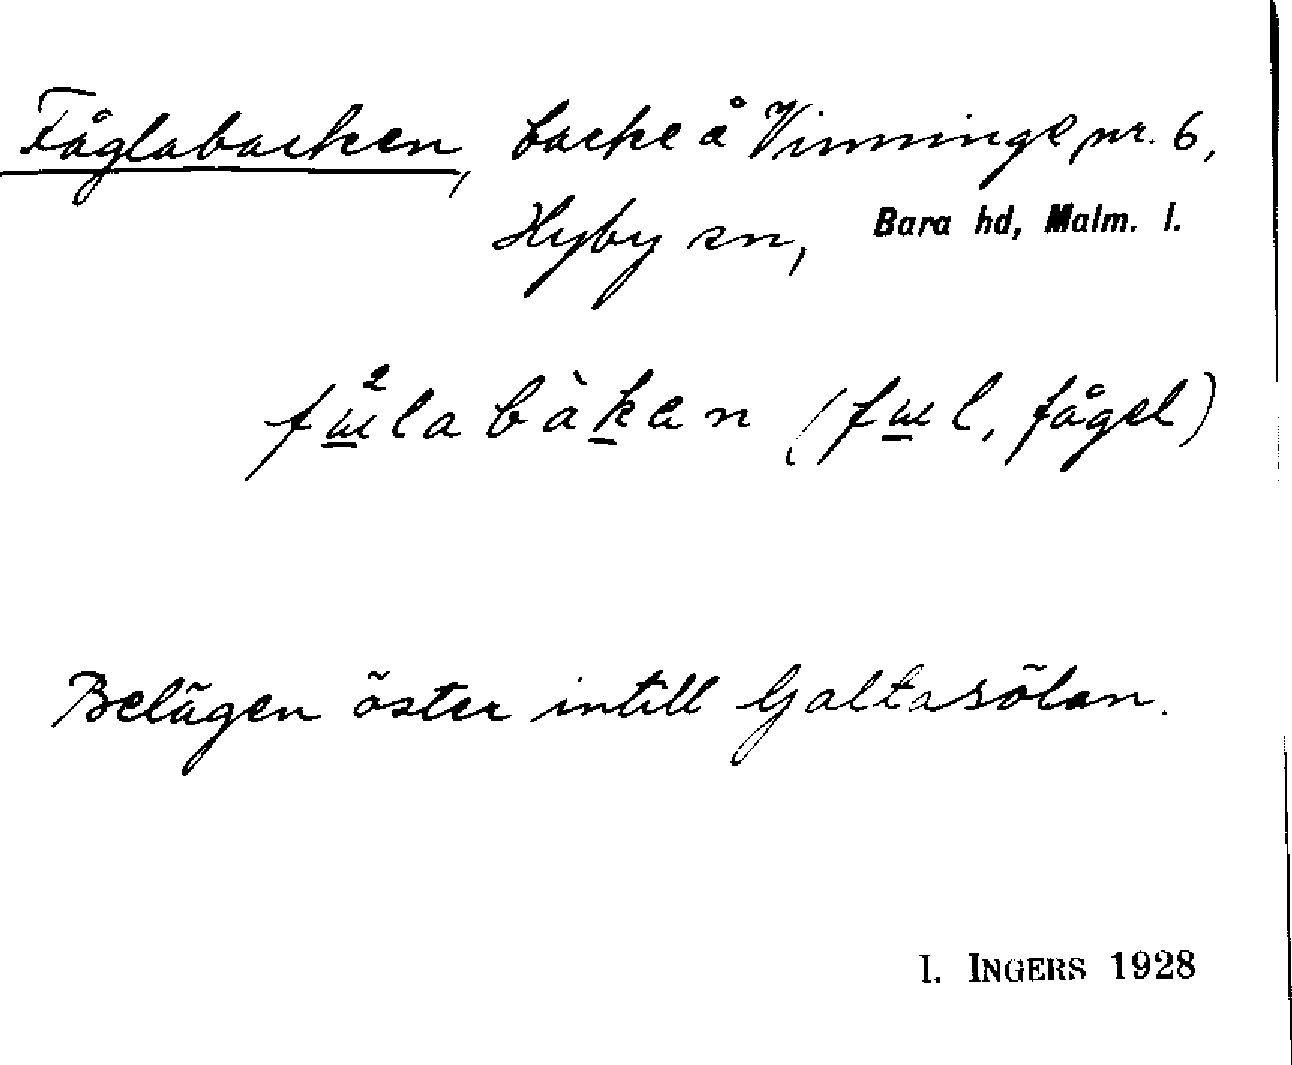 Fåglabacken, backe å Vinninge nr. 6,
Hyby sn, Bara hd, Malm. l.
fɯ̲²labàk̲an (fɯ̲l, fågel)
Belägen öster intill Galtasölan.
I. INGERS 1928